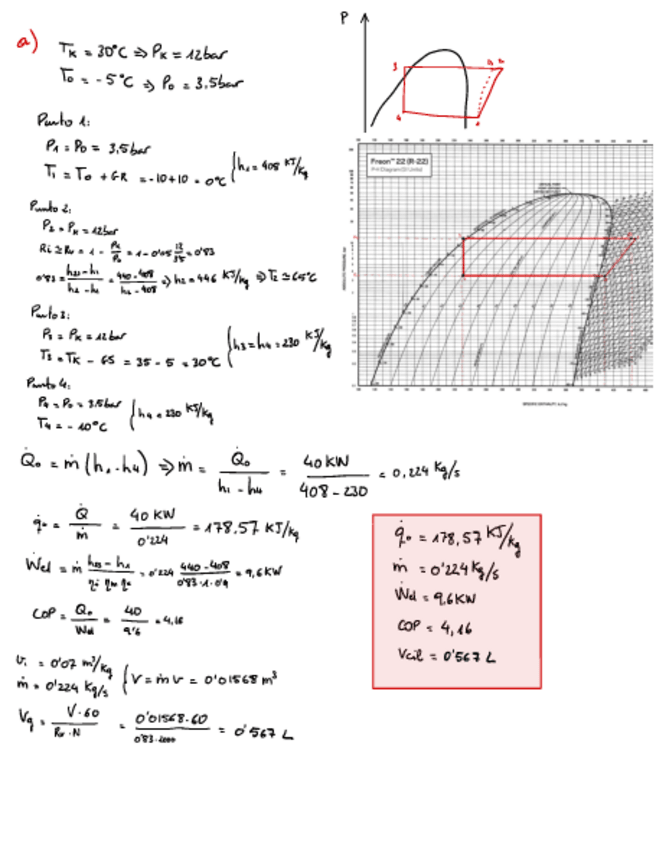 a)
P
T_K = 30°C ⇒ P_K = 12bar
T_0 = -5°C ⇒ P_0 = 3.5bar
3
4
1
Punto 1:
P_1 = P_0 = 3,5bar
T_1 = T_0 + GR = -10+10 = 0°C { h_1 = 408 KJ/Kg
Freon™ 22 (R-22)
Punto 2:
P_2 = P_K = 12bar
0'83 = (h_2s - h_1)/(h_2 - h_1) = (440-408)/(h_2 - 408) ⇒ h_2 = 446 KJ/kg ⇒ T_2 ≃ 65°C
Punto 3:
P_3 = P_K = 12bar
T_3 = T_K - GS = 35 - 5 = 30°C { h_3 = h_4 = 230 KJ/Kg
Punto 4:
P_4 = P_0 = 3.5bar
T_4 = -10°C { h_4 = 230 KJ/Kg
Q̇_0 = ṁ (h_1 - h_4) ⇒ ṁ = Q̇_0/(h_1 - h_4) = 40KW/(408 - 230) = 0,224 Kg/s
q̇_0 = Q̇/ṁ = 40 KW/0'224 = 178.57 KJ/Kg
Ẇel = ṁ (h_2s - h_1)/(η_i η_m η_e) = 0'224 (440-408)/(0'83·1·0'9) = 9,6KW
COP = Q_0/Wel = 40/9'6 = 4,16
V_1 = 0'07 m³/Kg
ṁ = 0'224 Kg/s { V = ṁ v = 0'01568 m³
V_g = V·60/(R_v·N) = 0'01568·60/(0'83·2000) = 0'567 L
q̇_0 = 178,57 KJ/Kg
ṁ = 0'224 Kg/s
Ẇel = 9,6KW
COP = 4,16
Vcil = 0'567 L